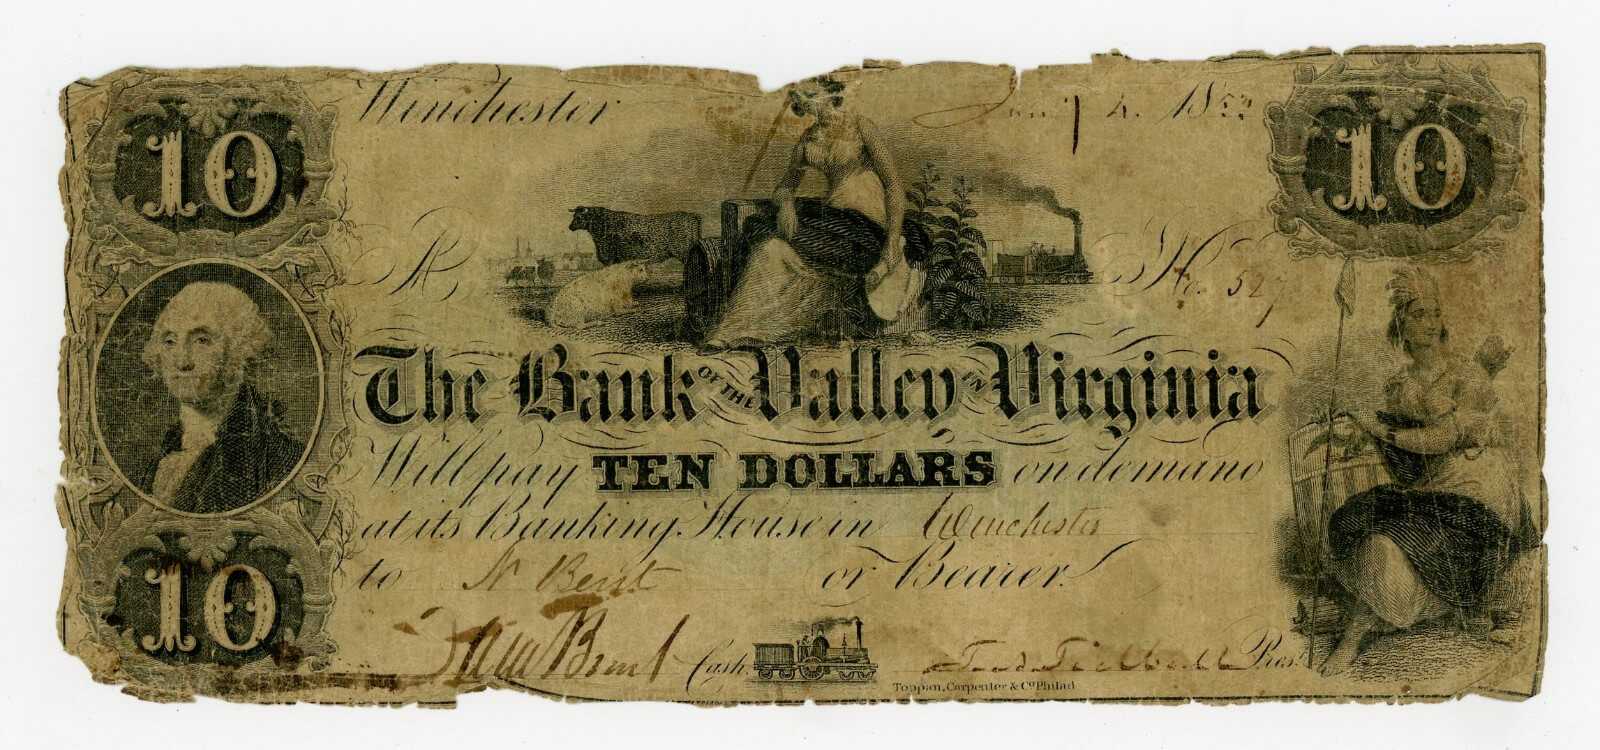 10 10
Winchester 185
A No. 527
The Bank OF THE Valley IN Virginia
Will pay TEN DOLLARS on demand
at its Banking House in Winchester
to or Bearer.
Cash. Prest
10
Toppan, Carpenter & Co Philad